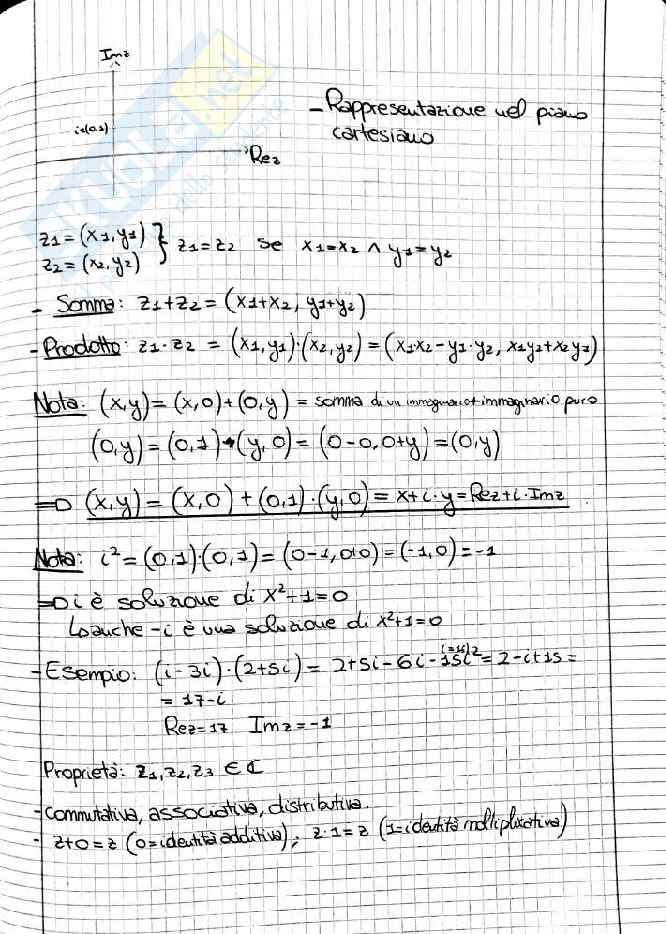 Imz
- Rappresentazione nel piano
cartesiano
Rez
z1=(x1,y1)
z2=(x2,y2) } z1=z2 se x1=x2 ∧ y1=y2
- Somma: z1+z2=(x1+x2, y1+y2)
- Prodotto: z1·z2 = (x1,y1)·(x2,y2)=(x1x2-y1·y2, x1y2+x2y1)
Nota: (x,y)=(x,0)+(0,y)= somma di un immaginario+immaginario puro
(0,y)=(0,1)·(y,0)=(0-0,0+y)=(0,y)
=> (x,y)=(x,0)+(0,1)·(y,0)=x+i·y=Rez+i·Imz
Nota: i²=(0,1)·(0,1)=(0-1,0+0)=(-1,0)=-1
=> i è soluzione di x²+1=0
↳ anche -i è una soluzione di x²+1=0
- Esempio: (i-3i)·(2+5i)= 2+5i-6i-15i²=2-i+15=
= 17-i
Rez=17 Imz=-1
Proprietà: z1,z2,z3 ∈ ℂ
- commutativa, associativa, distributiva.
- z+0=z (0=identità additiva); z·1=z (1=identità moltiplicativa)